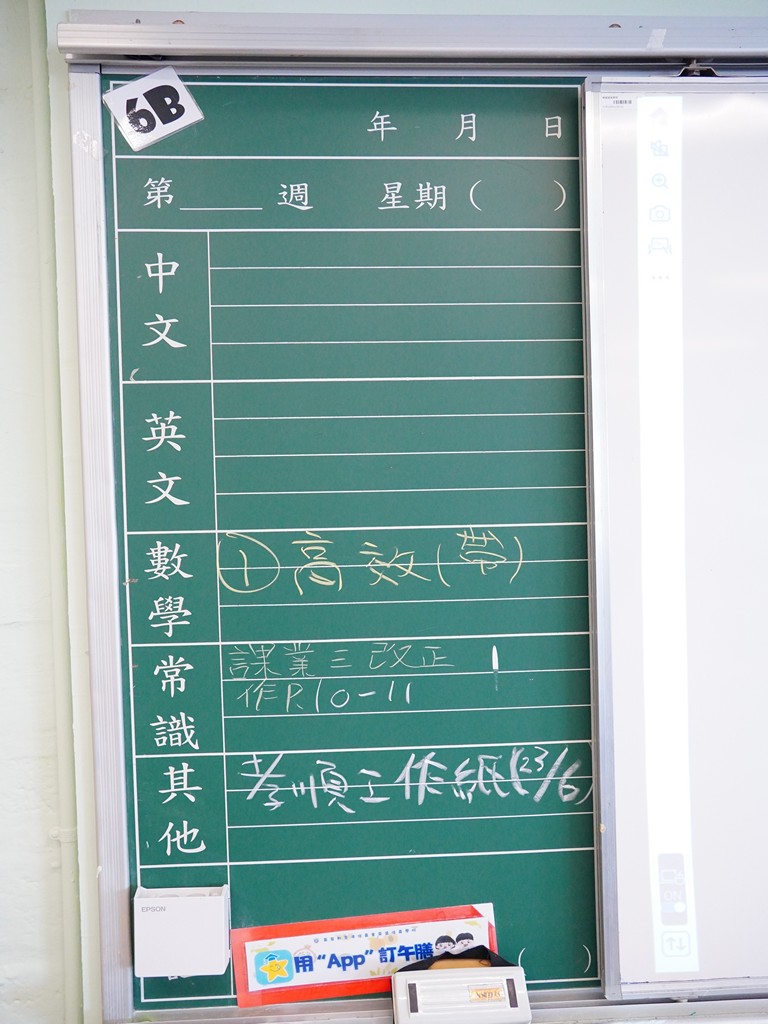 6B
年 月 日
第____週 星期( )
中文
英文
數學
① 高效(帶)
常識
課業三改正
作P.10-11
其他
孝順工作紙(23/6)
EPSON
用“App”訂午膳
( )